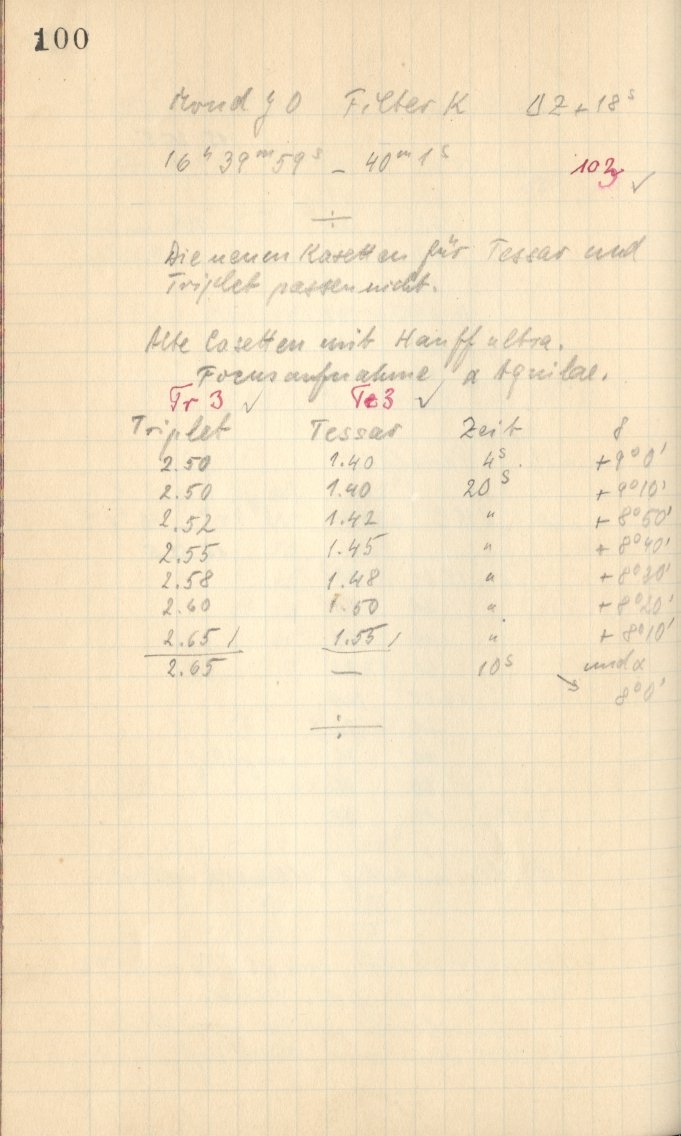 100
Mond J O Filter K ΔZ + 18ˢ
16ʰ 39ᵐ 59ˢ – 40ᵐ 1ˢ
103 ✓
÷
Die neuen Kasetten für Tessar und
Triplet passen nicht.
Alte Casetten mit Hauff ultra.
Focusaufnahme α Aquilae.
Tr 3 ✓ Te 3 ✓
Triplet Tessar Zeit δ
2.50 1.40 4ˢ. +9°0'
2.50 1.40 20ˢ +9°10'
2.52 1.42 " +8°50'
2.55 1.45 " +8°40'
2.58 1.48 " +8°30'
2.60 1.50 " +8°20'
2.65 / 1.55 / " +8°10'
2.65 — 10ˢ und α
↘ 8°0'
÷